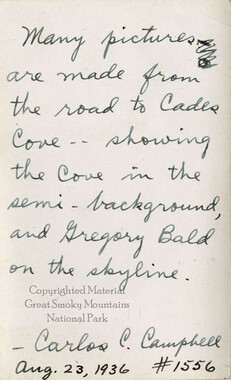 Many pictures
are made from
the road to Cades
Cove -- showing
the Cove in the
semi-background,
and Gregory Bald
on the skyline.
Copyrighted Material
Great Smoky Mountains
National Park
- Carlos C. Campbell
Aug. 23, 1936 #1556